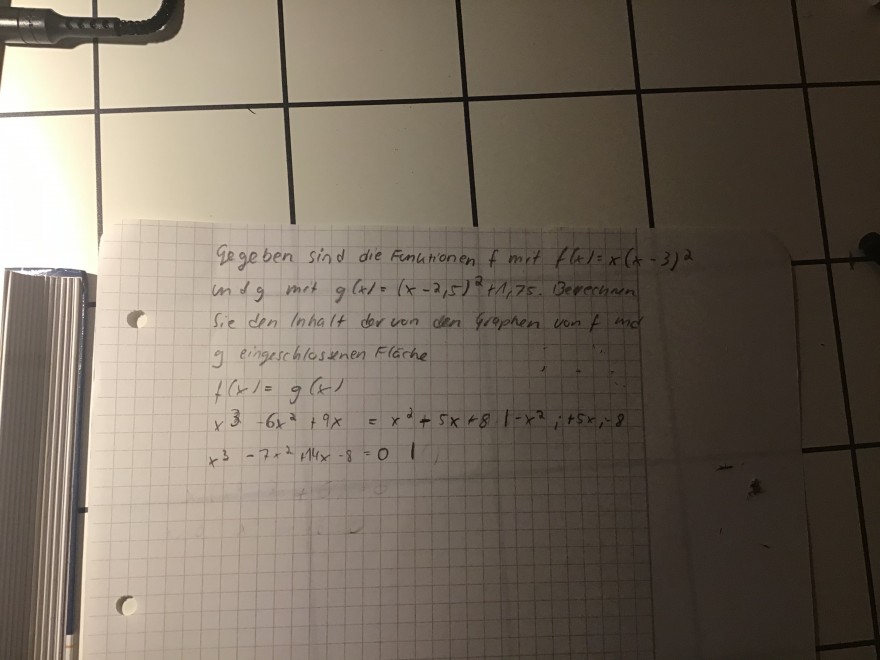 Gegeben sind die Funktionen f mit f(x) = x(x-3)²
und g mit g(x) = (x-2,5)² +1,75. Berechnen
Sie den Inhalt der von den Graphen von f und
g eingeschlossenen Fläche
f(x) = g(x)
x³ -6x² +9x = x² + 5x +8 |-x² ; +5x ; -8
x³ -7x² +14x -8 = 0 |